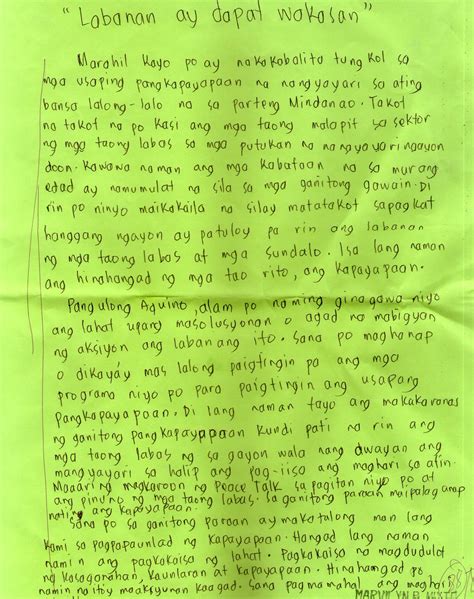 "Labanan ay dapat wakasan"
Marahil kayo po ay nakakabalita tungkol sa
mga usaping pangkapayapaan na nangyayari sa ating
bansa lalong-lalo na sa parteng Mindanao. Takot
na takot na po kasi ang mga taong malapit sa sektor
ng mga taong labas sa mga putukan na nangyayari ngayon
doon. Kawawa naman ang mga kabataan na sa murang
edad ay namumulat na sila sa mga ganitong gawain. Di
rin po ninyo maikakaila na silay matatakot sapagkat
hanggang ngayon ay patuloy pa rin ang labanan
ng mga taong labas at mga sundalo. Isa lang naman
ang hinahangad ng mga tao rito, ang kapayapaan.
Pangulong Aquino, alam po naming ginagawa niyo
ang lahat upang masolusyonan o agad na mabigyan
ng aksiyon ang labanang ito. Sana po maghanap
o dikayáy mas lalong paigtingin pa ang mga
programa niyo po para paigtingin ang usapang
Pangkapayapaan. Di lang naman tayo ang makakaranas
ng ganitong pangkapayapaan kundi pati na rin ang
mga taong labas ng sa gayon wala nang awayan ang
mangyayari sa halip ang pag-iisa ang maghari sa atin.
Maaaring magkaroon ng Peace Talk sa pagitan niyo po at
ang pinuno ng mga taong labas. Sa ganitong paraan maipalaganap
natin ang kapayapaan.
Sana po sa ganitong paraan ay makatulong man lang
kami sa pagpapaunlad ng kapayapaan. Hangad lang naman
namin ang pagkakaisa ng lahat. Pagkakaisa na magdudulot
ng kasaganahan, kaunlaran at kapayapaan. Hinahangad po
namin na itoy maaksyunan kaagad. Sana pagmamahal ang maghari
MARVILYN B.